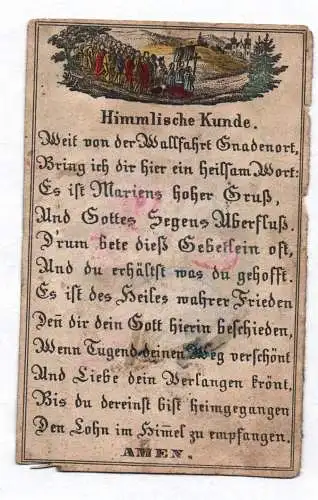 Himmlische Kunde.
Weit von der Wallfahrt Gnadenort,
Bring ich dir hier ein heilsam Wort:
Es ist Mariens hoher Gruß,
Und Gottes Segens Uberfluß.
D'rum bete dieß Gebetlein oft,
Und du erhältst was du gehofft.
Es ist des Heiles wahrer Frieden
Den̄ dir dein Gott hierin beschieden,
Wenn Tugend deinen Weg verschönt
Und Liebe dein Verlangen krönt,
Bis du dereinst bist heimgegangen
Den Lohn im Him̄el zu empfangen.
AMEN.